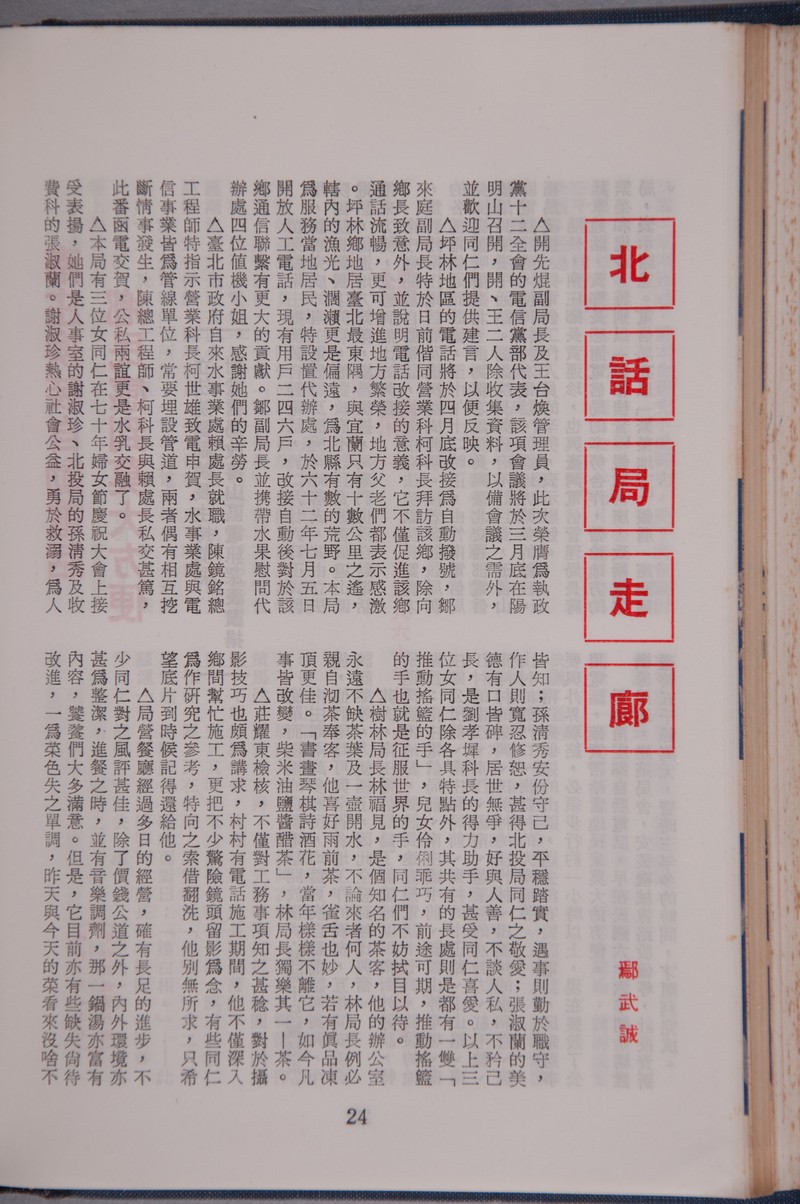 北話局走廊
鄢武誠
△開先焜副局長及王台煥管理員，此次榮膺爲執政
黨十二全會的電信黨部代表，該項會議將於三月底在陽
明山召開，開、王二人除收集資料，以備會議之需外，
並歡迎同仁們提供建言，以便反映。
△坪林地區的電話將於四月底改接爲自動撥號，鄒
來庭副局長特於日前偕同營業科柯科長拜訪該鄉，除向
鄉長致意外，並說明電話改接的意義，它不僅促進該鄉
通話流暢，更可增進地方繁榮，地方父老們都表示感激
。坪林鄉地居臺北最東隅，與宜蘭只有十數公里之遙，
轄內的漁光、濶瀨更是偏遠，爲北縣有數的荒野。本局
爲服務當地居民，特設置代辦處，於六十二年七月五日
開放人工電話，現有用戶二四六戶，改接自動後對於該
鄉通信聯繫有更大的貢獻。鄒副局長並携帶水果慰問代
辦處四位值機小姐，感謝她們的辛勞。
△臺北市政府自來水事業處賴處長就職，陳鏡銘總
工程師特指示營業科長柯世雄致電申賀，水事業處與電
信事業皆爲管線單位，常要埋設管道，兩者偶有相互挖
斷情事發生，陳總工程師、柯科長與賴處長私交甚篤，
此番函電交賀，公私兩誼更是水乳交融了。
△本局有三位女同仁在七十年婦女節慶祝大會上接
受表揚，她們是人事室的謝淑珍、北投局的孫清秀及收
費科的張淑蘭。謝淑珍熱心社會公益，勇於救溺，爲人
皆知；孫清秀安份守己，平穩踏實，遇事則勤於職守，
作人則寬忍修恕，甚得北投局同仁之敬愛；張淑蘭的美
德有口皆碑，居世無爭，好與人善，不談人私，不矜己
長，是劉孝墀科長的得力助手，甚受同仁喜愛。以上三
位女同仁除各具特點外，其共有的長處則是都有一雙「
推動搖籃的手」，兒女伶俐乖巧，前途可期，推動搖籃
的手也就是征服世界的手，同仁們不妨拭目以待。
△樹林局長林福見，是個知名的茶客，他的辦公室
永遠不缺茶葉及一壺開水，不論來者何人，林局長例必
親自沏茶奉客，他喜好雨前茶，雀舌也妙，若有眞品凍
頂更佳。「書畫琴棋詩酒花，當年樣樣不離它，如今凡
事皆改變，柴米油鹽醬醋茶」，林局長獨樂其一—茶。
△莊耀東檢核，不僅對工務事項知之甚稔，對於攝
影技巧也頗爲講求，村村有電話施工期間，他不僅深入
鄉間幫忙施工，更把不少驚險鏡頭留影爲念，有些同仁
爲作研究之參考，特向之索借翻洗，他別無所求，只希
望底片到時候記得還給他。
△局營餐廳經過多日的經營，確有長足的進步，不
少同仁對之風評甚佳，除了價錢公道之外，內外環境亦
甚爲整潔，進餐之時，並有音樂調劑，那一鍋湯亦富有
內容，饕餮們大多滿意。但是，它目前亦有些缺失尙待
改進，一爲菜色失之單調，昨天與今天的菜看來沒啥不
24